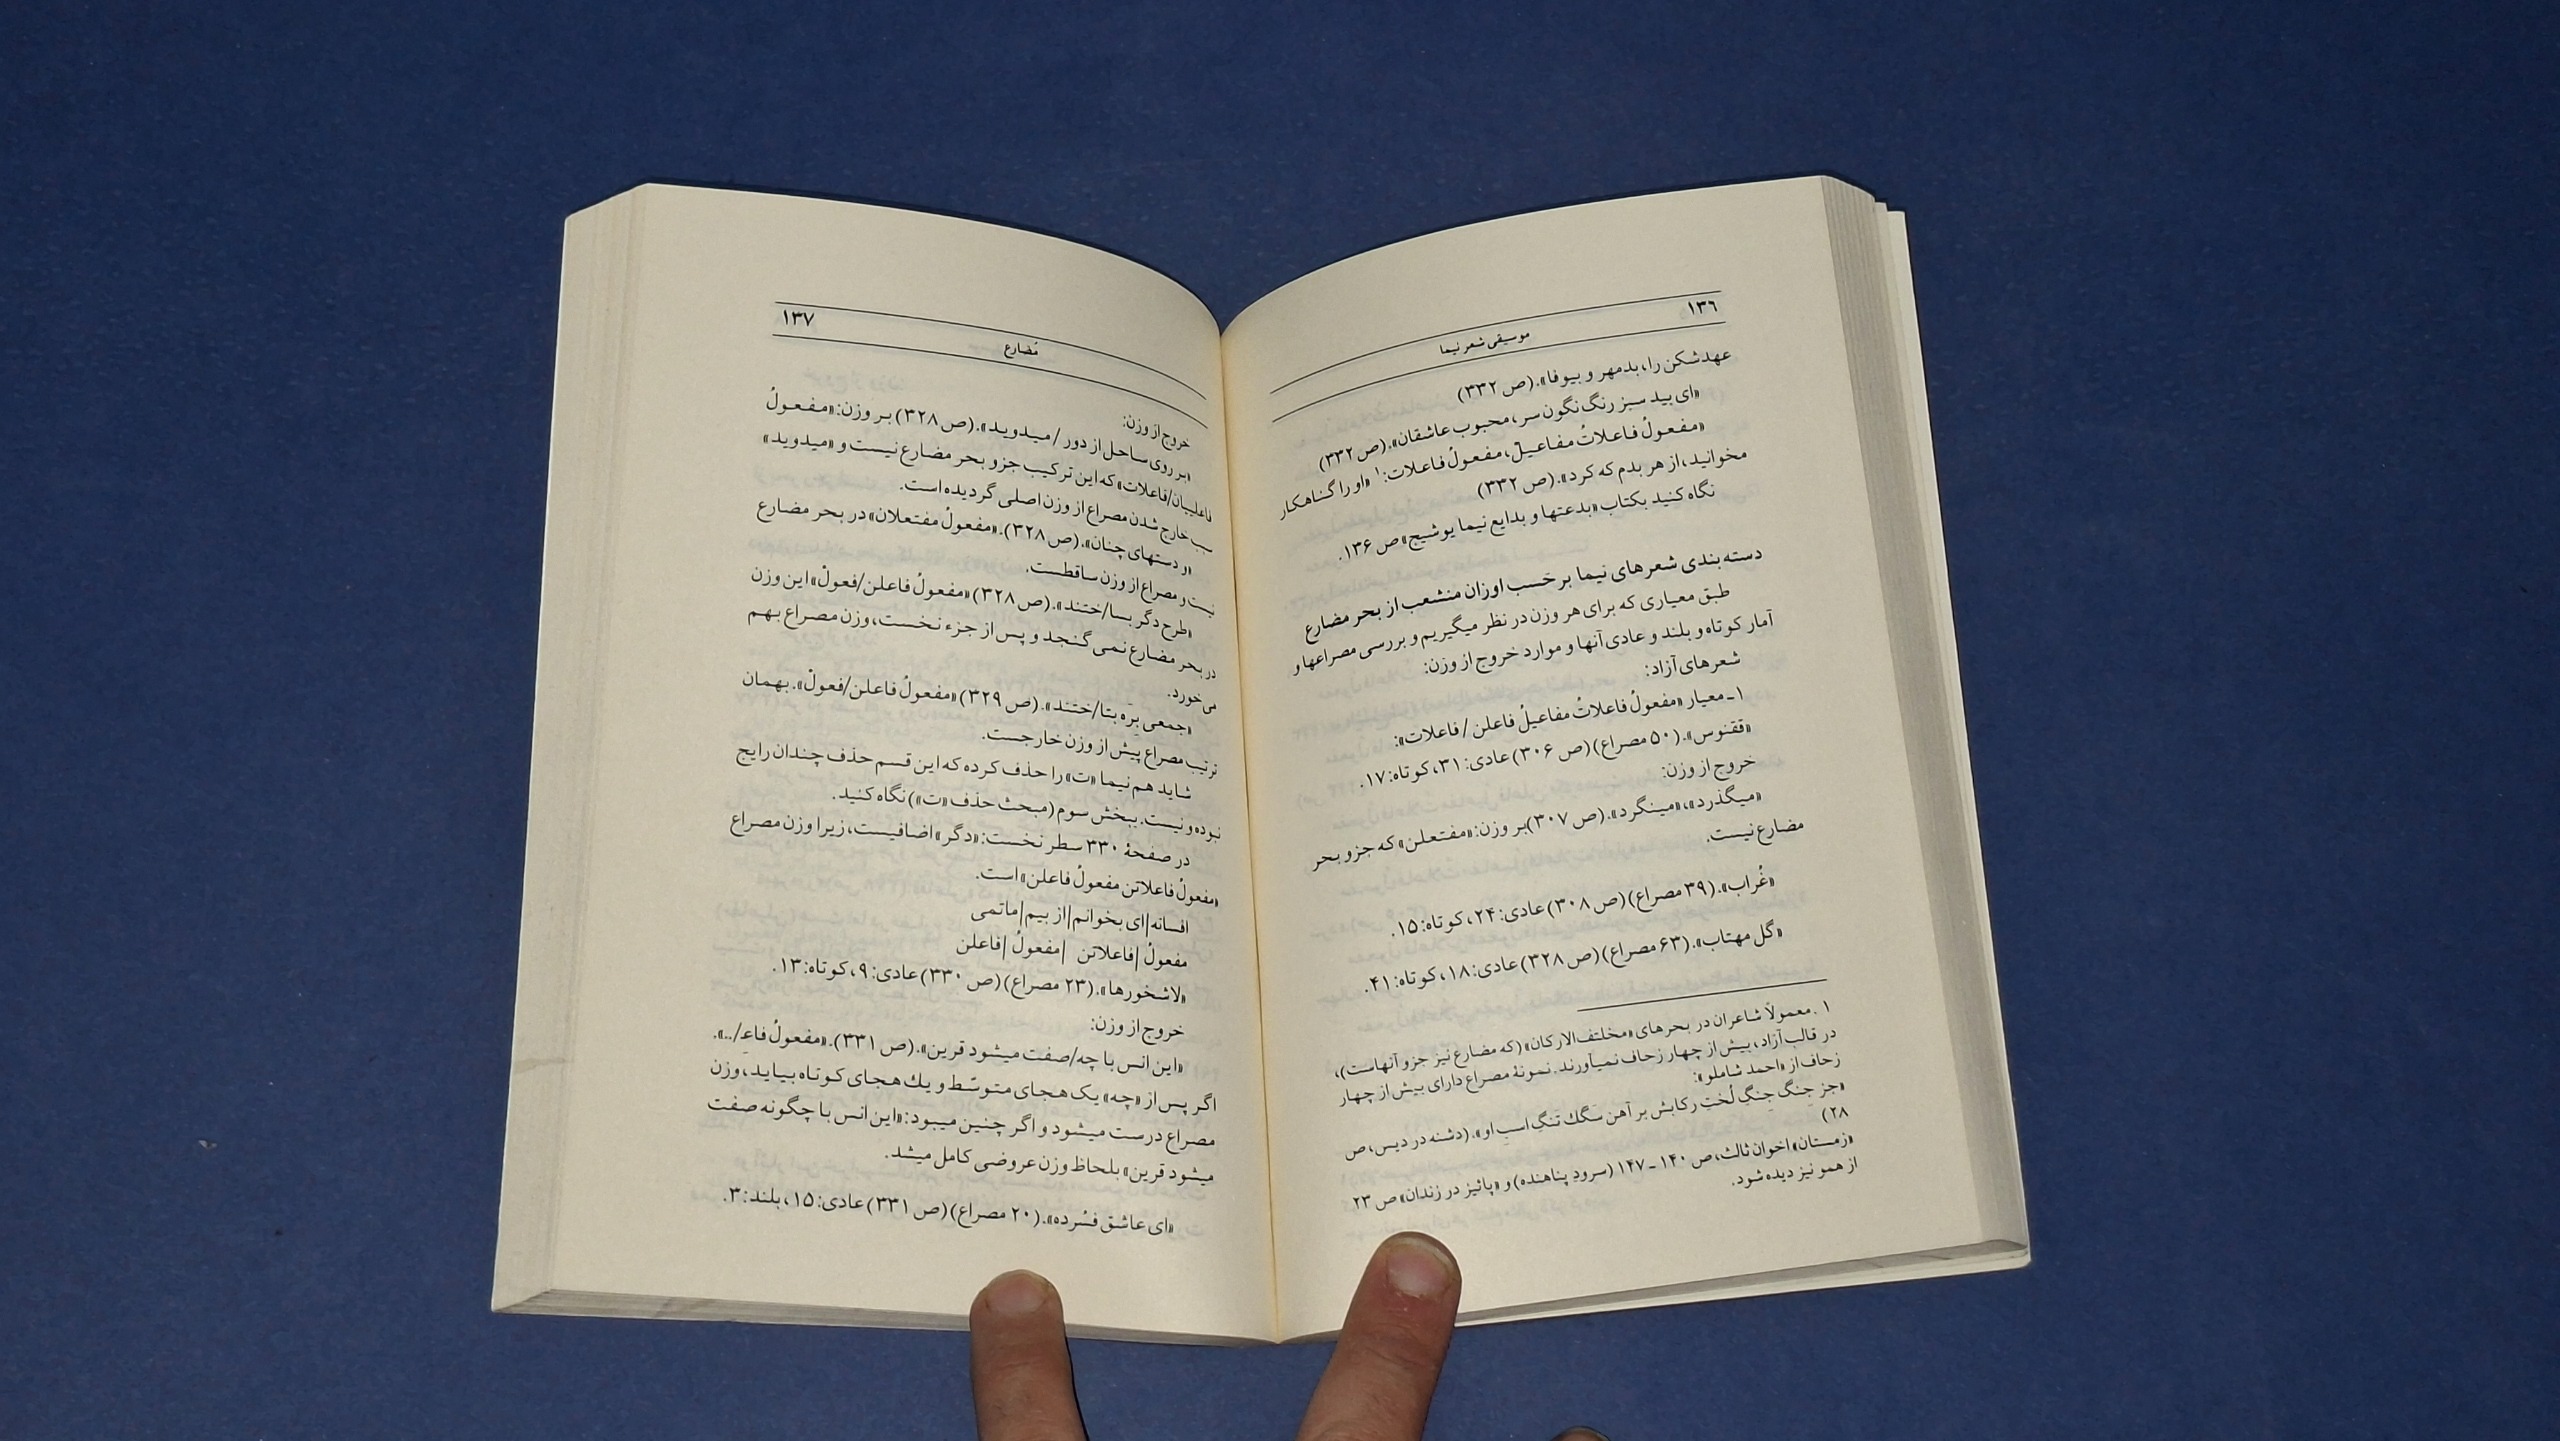 ۱۳۶
موسیقی شعر نیما
عهدشکن را، بدمهر و بیوفا». (ص ۳۳۲)
«ای بید سبز رنگ نگون سر، محبوب عاشقان». (ص ۳۳۲)
«مفعولُ فاعلاتُ مفاعیلُ، مفعولُ فاعلات:۱ «او را گناهکار
مخوانید، از هر بدم که کرد». (ص ۳۳۲)
نگاه کنید بکتاب «بدعتها و بدایع نیما یوشیج» ص ۱۳۶.
دسته‌بندی شعرهای نیما بر حَسب اوزان منشعب از بحر مضارع
طبق معیاری که برای هر وزن در نظر میگیریم و بررسی مصراعها و
آمار کوتاه و بلند و عادی آنها و موارد خروج از وزن:
شعرهای آزاد:
۱ـ معیار «مفعولُ فاعلاتُ مفاعیلُ فاعلن / فاعلات»:
«ققنوس». (۵۰ مصراع) (ص ۳۰۶) عادی: ۳۱، کوتاه: ۱۷.
خروج از وزن:
«میگذرد»، «مینگرد». (ص ۳۰۷) بر وزن: «مفتعلن» که جزو بحر
مضارع نیست.
«غُراب». (۳۹ مصراع) (ص ۳۰۸) عادی: ۲۴، کوتاه: ۱۵.
«گل مهتاب». (۶۳ مصراع) (ص ۳۲۸) عادی: ۱۸، کوتاه: ۴۱.
۱. معمولاً شاعران در بحرهای «مختلف‌الارکان» (که مضارع نیز جزو آنهاست)،
در قالب آزاد، بیش از چهار زحاف نمیآورند. نمونهٔ مصراع دارای بیش از چهار
زحاف از «احمد شاملو»:
«جز جِنگ جِنگِ لُختِ رکابش بر آهن سگك تَنگِ اسبِ او». (دشنه در دیس، ص
۲۸)
«زمستان» اخوان ثالث، ص ۱۴۰ ـ ۱۴۷ (سرودِ پناهنده) و «پائیز در زندان» ص ۲۳
از همو نیز دیده شود.
۱۳۷
مُضارع
خروج از وزن:
«بر روی ساحل از دور / میدوید». (ص ۳۲۸) بر وزن: «مفعولُ
فاعلییان/فاعلات» که این ترکیب جزو بحر مضارع نیست و «میدوید»
سبب خارج شدن مصراع از وزن اصلی گردیده است.
«و دستهای چنان». (ص ۳۲۸). «مفعولُ مفتعلان» در بحر مضارع
نیست و مصراع از وزن ساقطست.
«طرح دگر بسا/ختند». (ص ۳۲۸) «مفعولُ فاعلن/فعولْ» این وزن
در بحر مضارع نمی‌گنجد و پس از جزء نخست، وزن مصراع بهم
می‌خورد.
«جمعی بِرَه بتا/ختند». (ص ۳۲۹) «مفعولُ فاعلن/فعولْ». بهمان
ترتیب مصراع پیش از وزن خارجست.
شاید هم نیما «ت» را حذف کرده که این قسم حذف چندان رایج
نبوده و نیست. ببخش سوم (مبحث حذف «ت») نگاه کنید.
در صفحهٔ ۳۳۰ سطر نخست: «دگر» اضافیست، زیرا وزن مصراع
«مفعولُ فاعلاتن مفعولُ فاعلن» است.
افسانه|ای بخوانم|از بیم|ماتمی
مفعولُ |فاعلاتن |مفعولُ |فاعلن
«لاشخورها». (۲۳ مصراع) (ص ۳۳۰) عادی: ۹، کوتاه: ۱۳.
خروج از وزن:
«این انس با چه/صفت میشود قرین». (ص ۳۳۱). «مفعولُ فاعِ/..».
اگر پس از «چه» یک هجای متوسّط و یك هجای کوتاه بیاید، وزن
مصراع درست میشود و اگر چنین میبود: «این انس با چگونه صفت
میشود قرین» بلحاظ وزن عروضی کامل میشد.
«ای عاشق فسُرده». (۲۰ مصراع) (ص ۳۳۱) عادی: ۱۵، بلند: ۳.